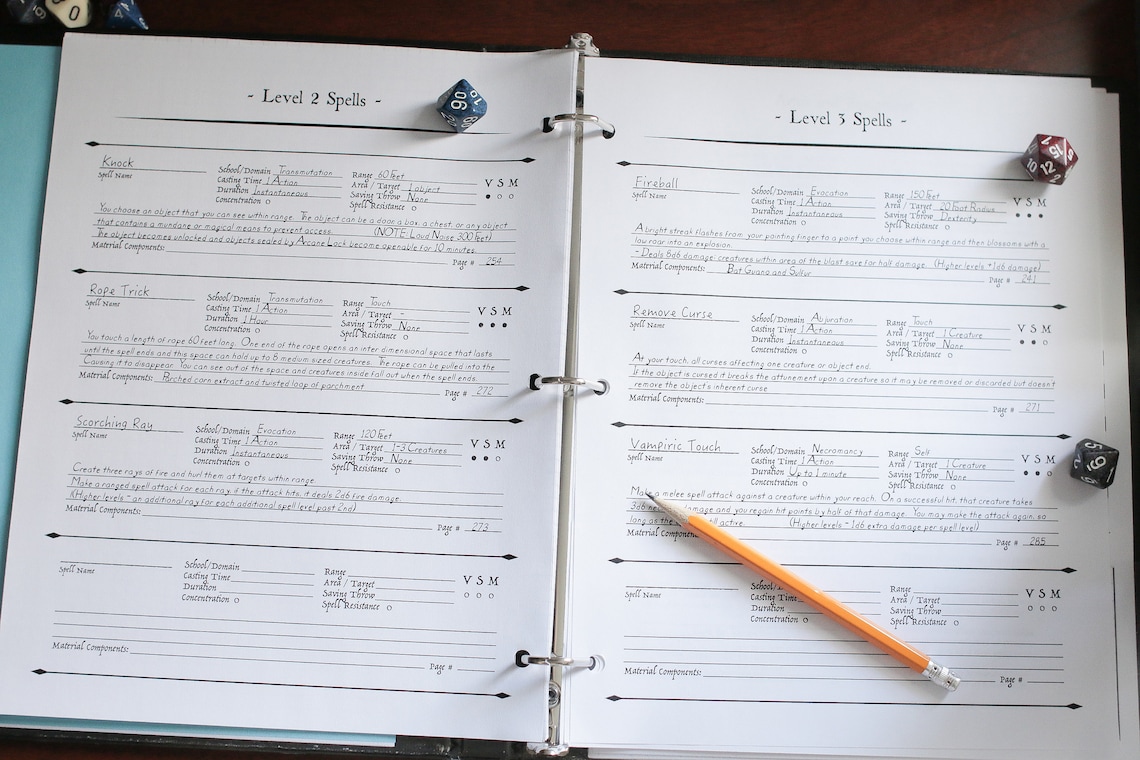 - Level 2 Spells -
Knock
Spell Name
School/Domain Transmutation
Casting Time 1 Action
Duration Instantaneous
Concentration
Range 60 feet
Area / Target 1 object
Saving Throw None
Spell Resistance
V S M
You choose an object that you can see within range. The object can be a door, a box, a chest, or any object
that contains a mundane or magical means to prevent access. (NOTE: Loud Noise 300 feet)
The object becomes unlocked and objects sealed by Arcane Lock become openable for 10 minutes
Material Components:
Page # 254
Rope Trick
Spell Name
School/Domain Transmutation
Casting Time 1 Action
Duration 1 Hour
Concentration
Range Touch
Area / Target -
Saving Throw None
Spell Resistance
V S M
You touch a length of rope 60 feet long. One end of the rope opens an inter dimensional space that lasts
until the spell ends and this space can hold up to 8 medium sized creatures. The rope can be pulled into the
Causing it to disappear. You can see out of the space and creatures inside fall out when the spell ends.
Material Components: Powdered corn extract and twisted loop of parchment
Page # 272
Scorching Ray
Spell Name
School/Domain Evocation
Casting Time 1 Action
Duration Instantaneous
Concentration
Range 120 feet
Area / Target 1-3 Creatures
Saving Throw None
Spell Resistance
V S M
Create three rays of fire and hurl them at targets within range.
Make a ranged spell attack for each ray, if the attack hits, it deals 2d6 fire damage.
(Higher levels - an additional ray for each additional spell level past 2nd)
Material Components:
Page # 273
Spell Name
School/Domain
Casting Time
Duration
Concentration
Range
Area / Target
Saving Throw
Spell Resistance
V S M
Material Components:
Page #
- Level 3 Spells -
Fireball
Spell Name
School/Domain Evocation
Casting Time 1 Action
Duration Instantaneous
Concentration
Range 150 feet
Area / Target 20 Foot Radius
Saving Throw Dexterity
Spell Resistance
V S M
A bright streak flashes from your pointing finger to a point you choose within range and then blossoms with a
low roar into an explosion.
- Deals 8d6 damage: creatures within area of the blast save for half damage. (Higher levels +1d6 damage)
Material Components: Bat Guano and Sulfur
Page # 241
Remove Curse
Spell Name
School/Domain Abjuration
Casting Time 1 Action
Duration Instantaneous
Concentration
Range Touch
Area / Target 1 Creature
Saving Throw None
Spell Resistance
V S M
At your touch, all curses affecting one creature or object end.
If the object is cursed it breaks the attunement upon a creature so it may be removed or discarded but doesn't
remove the object's inherent curse
Material Components:
Page # 271
Vampiric Touch
Spell Name
School/Domain Necromancy
Casting Time 1 Action
Duration Up to 1 minute
Concentration
Range Self
Area / Target 1 Creature
Saving Throw None
Spell Resistance
V S M
Make a melee spell attack against a creature within your reach. On a successful hit, that creature takes
3d6 damage and you regain hit points by half of that damage. You may make the attack again, so
long as the spell active. (Higher levels - 1d6 extra damage per spell level)
Material
Page # 285
Spell Name
School/Domain
Casting Time
Duration
Concentration
Range
Area / Target
Saving Throw
Spell Resistance
V S M
Material Components:
Page #
90
12
10